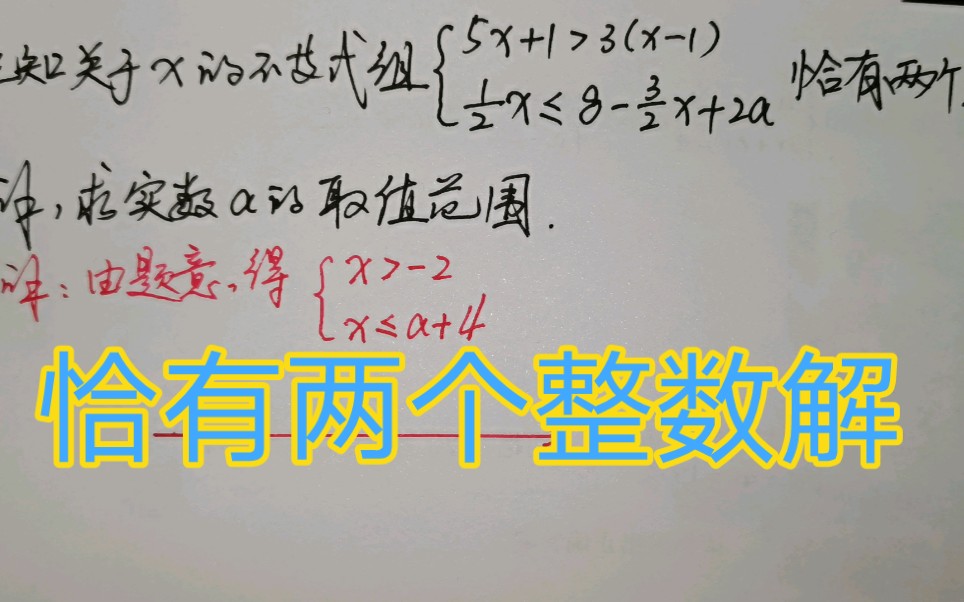 知关于x的不等式组{5x+1>3(x-1)
1/2x≤8-3/2x+2a 恰有两个
解,求实数a的取值范围.
解:由题意,得{x>-2
x≤a+4
恰有两个整数解